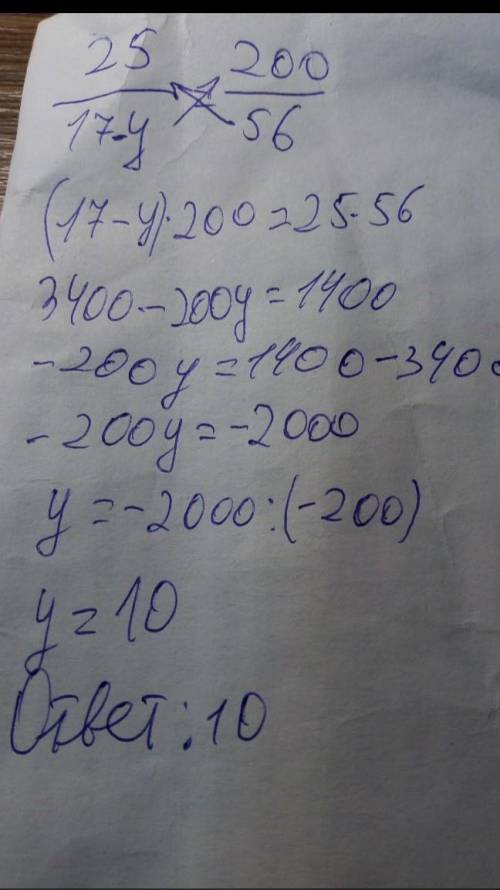 25/(17-y) = 200/56
(17-y)·200=25·56
3400-200y=1400
-200y=1400-3400
-200y=-2000
y=-2000:(-200)
y=10
Ответ:10